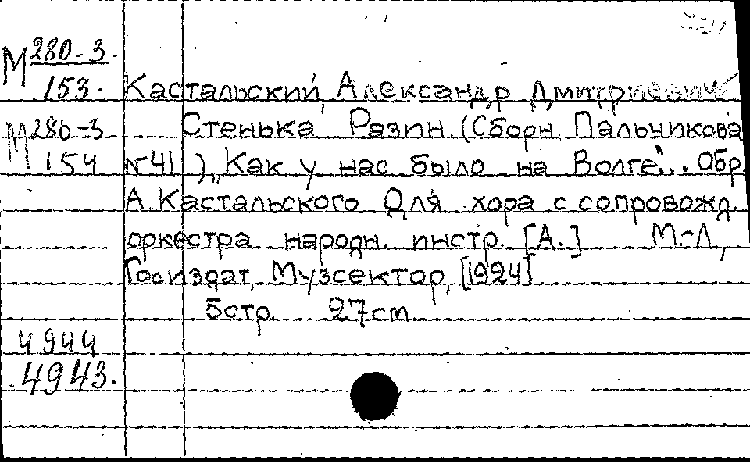 М 280-3
153. Кастальский, Александр Дмитриевич
М 280-3 Стенька Разин (Сборн. Пальчикова
154 №41) „Как у нас было на Волге“... Обр.
А. Кастальского Для хора с сопровожд.
оркестра народн. инстр. [А.] М-Л,
Госиздат, Музсектор, [1924]
5стр. 27cm
4944
4943.